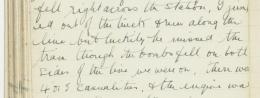 fell right across the station, I jump
ed out of the truck & ran along the
line, but luckily he missed the
train though the bombs fell on both
sides of the line we were on. There was
4 or 5 casualties, & the engine was